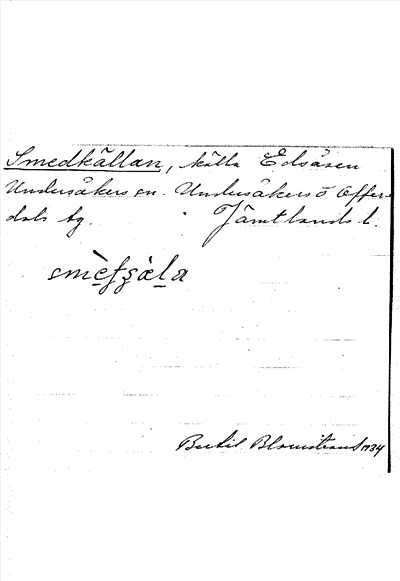 Smedkällan, källa Edsåsen
Undersåkers sn. Undersåkers o Offer-
dals tg. Jämtlands l.
Bertil Blomstrand 1934